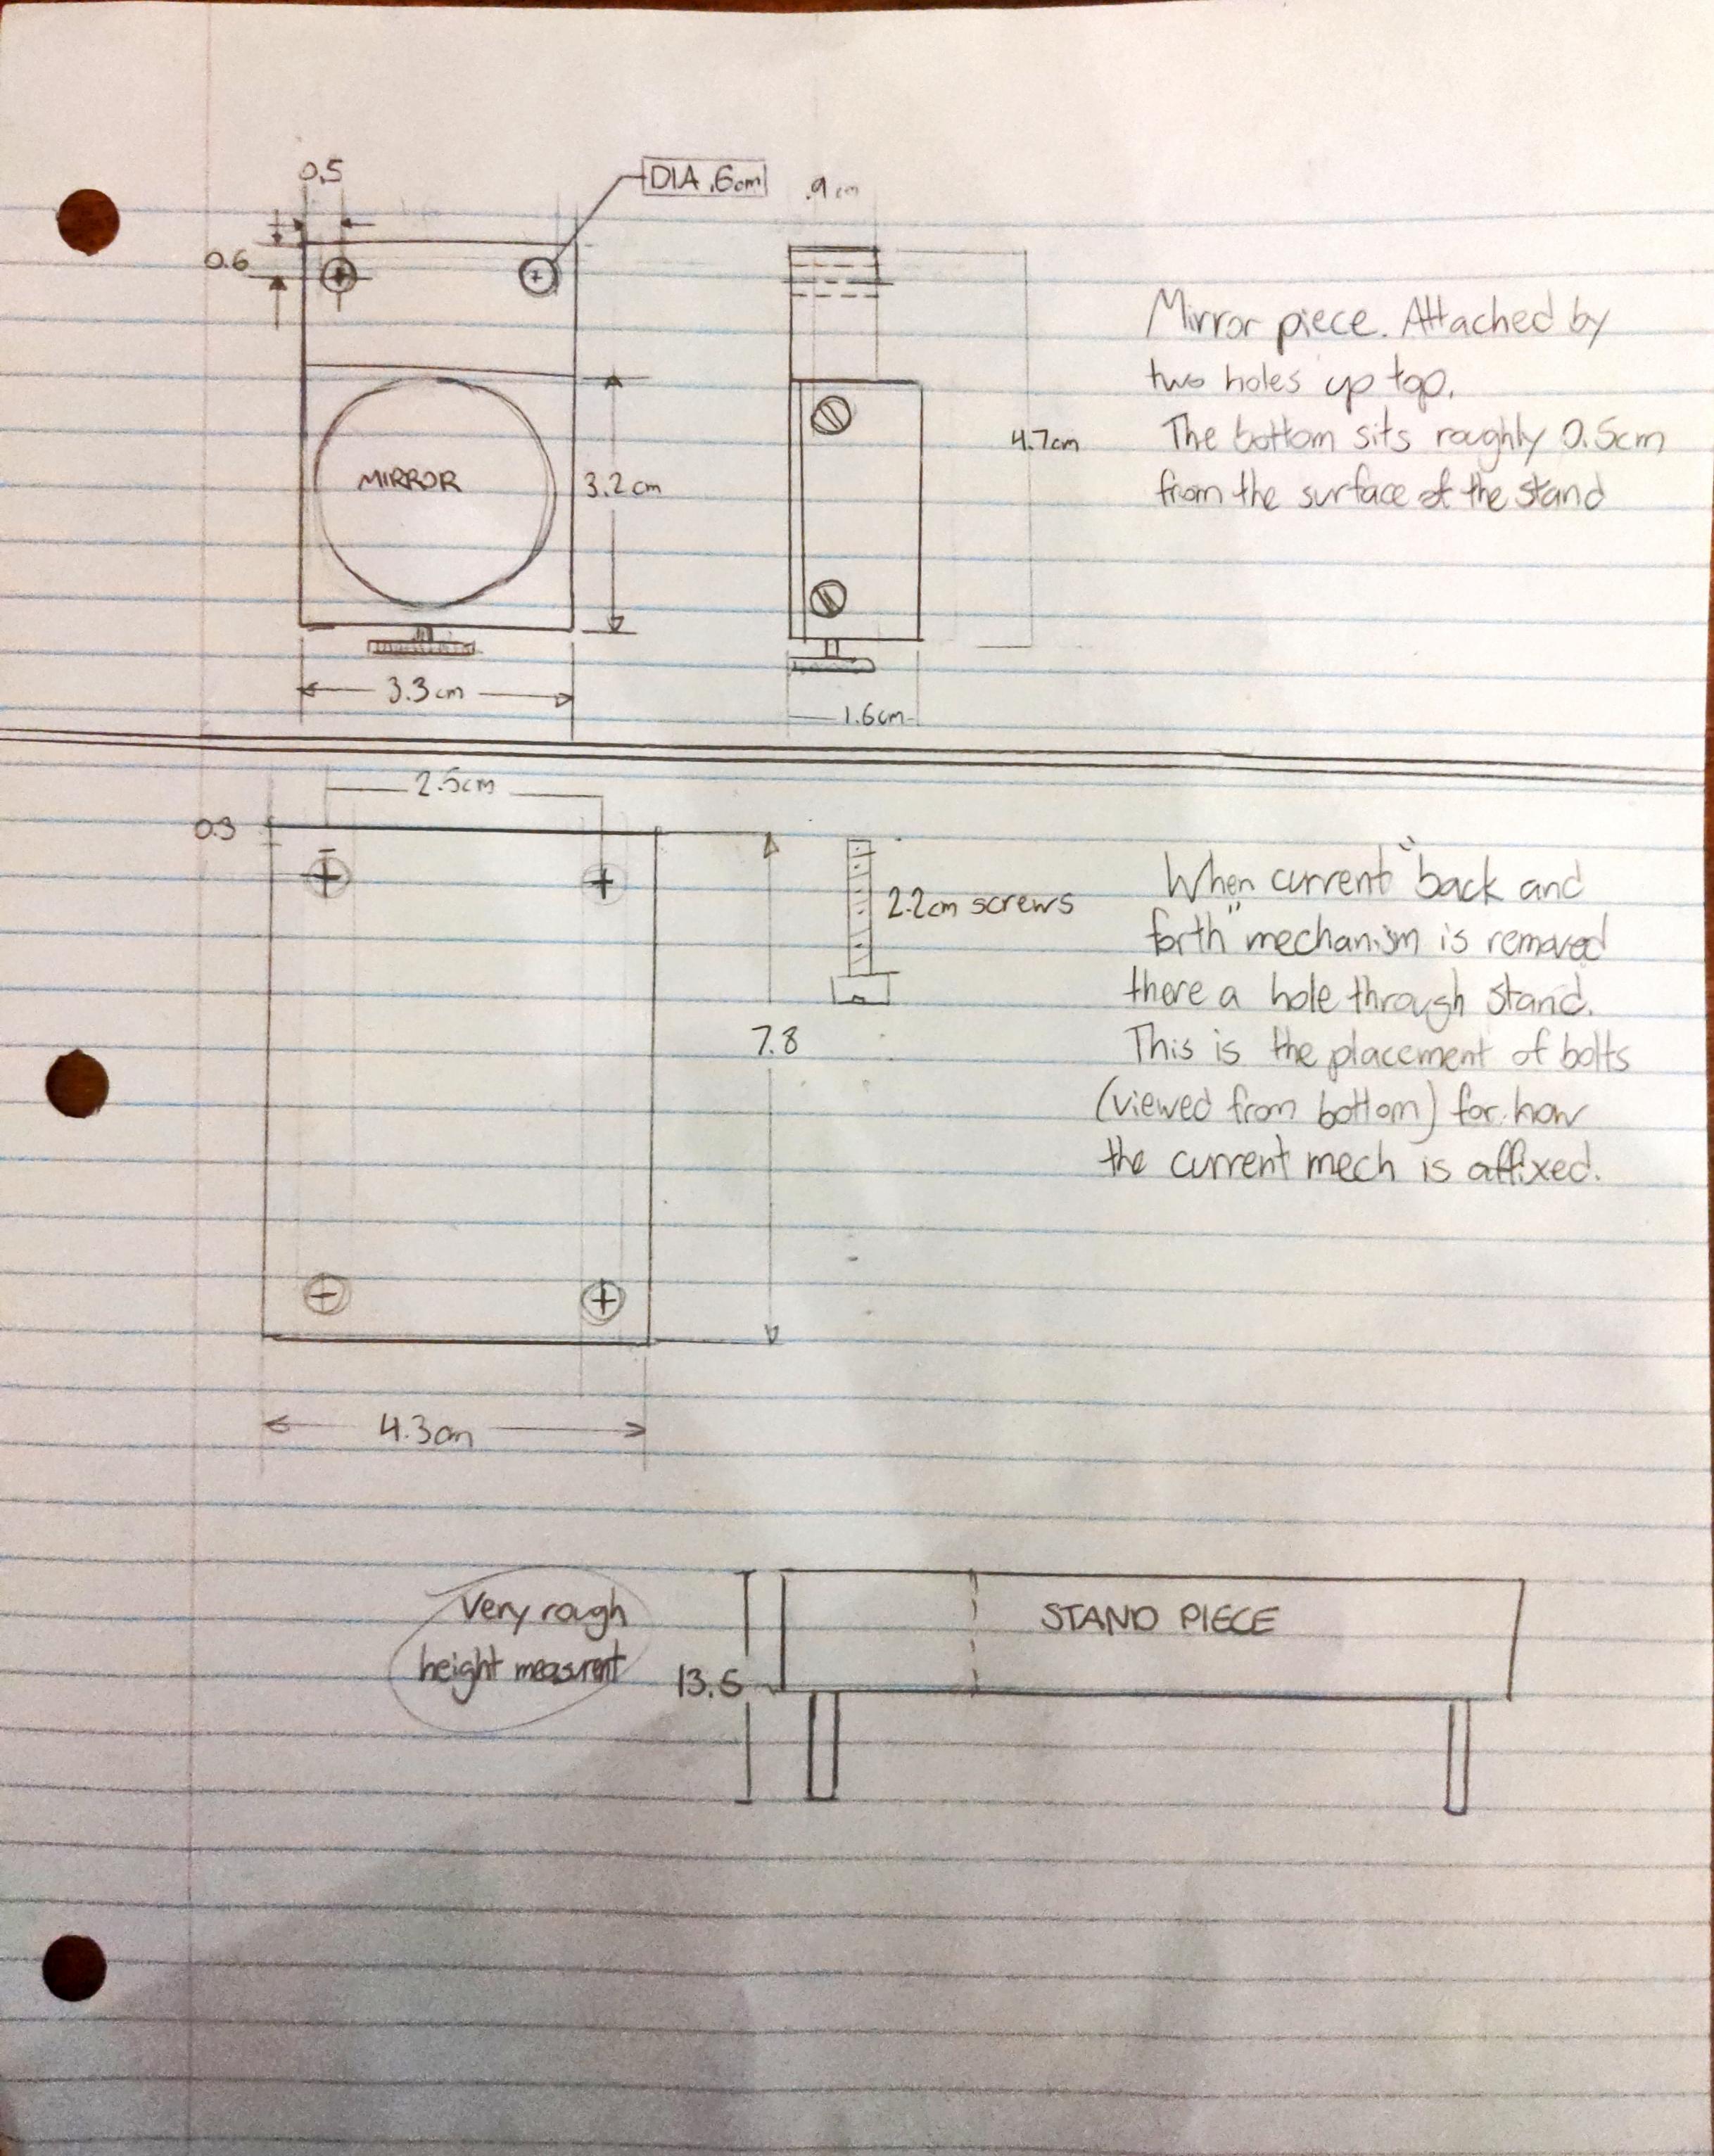 0.5
DIA .6cm
.9cm
0.6
Mirror piece. Attached by
two holes up top.
The bottom sits roughly 0.5cm
from the surface of the stand
4.7cm
MIRROR
3.2cm
3.3cm
1.6cm
2.5cm
0.3
2.2cm screws
7.8
When current "back and
forth" mechanism is removed
there a hole through stand.
This is the placement of bolts
(viewed from bottom) for how
the current mech is affixed.
4.3cm
Very rough
height measurent
13.6
STAND PIECE